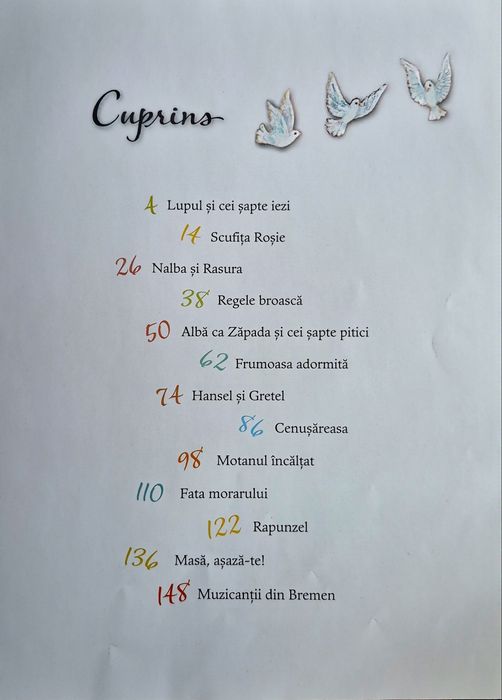 Cuprins
4 Lupul și cei șapte iezi
14 Scufița Roșie
26 Nalba și Rasura
38 Regele broască
50 Albă ca Zăpada și cei șapte pitici
62 Frumoasa adormită
74 Hansel și Gretel
86 Cenușăreasa
98 Motanul încălțat
110 Fata morarului
122 Rapunzel
136 Masă, așază-te!
148 Muzicanții din Bremen